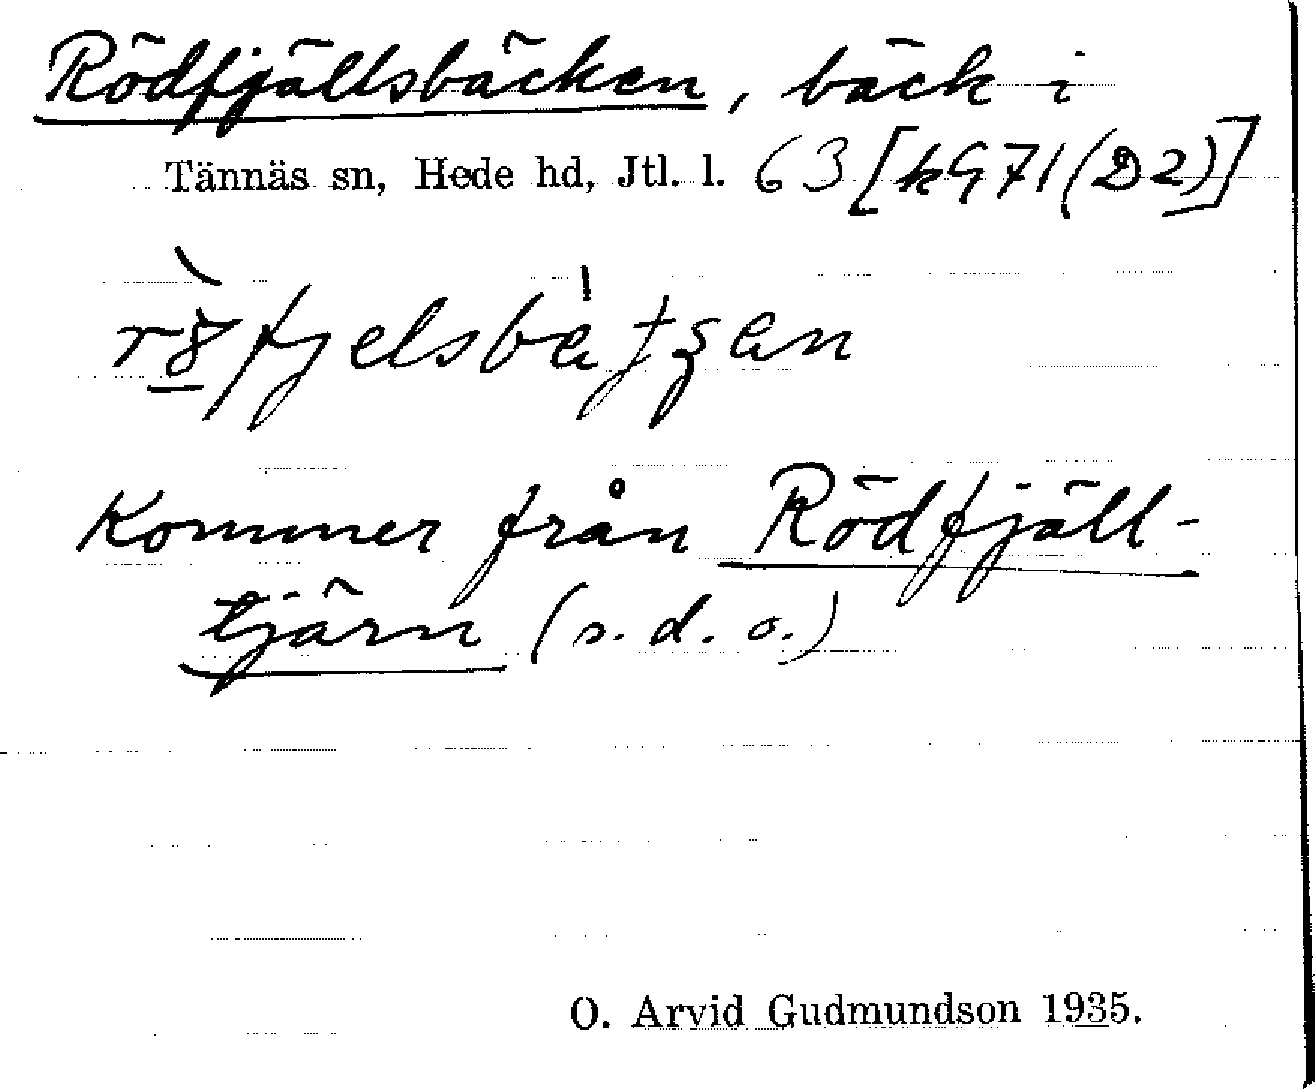 Rödfjällsbäcken, bäck i
Tännäs sn, Hede hd, Jtl. l. 63 [kG71(D2)]
Kommer från Rödfjäll-
tjärn (s.d.o.)
O. Arvid Gudmundson 1935.